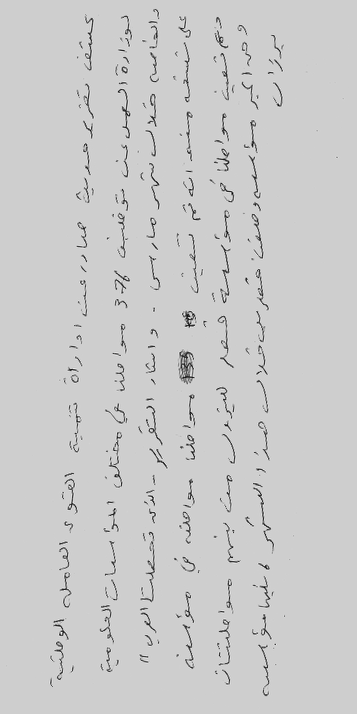 كشف تقرير حديث صادر عن ادارة تنمية القوى العاملة الوطنية
بوزارة العمل عن توظيف 376 مواطنا في مختلف المؤسسات الحكومية
والخاصة خلال شهر مارس - واشار التقرير - الذي تحصلت العرب "
على نسخة منه انه تم تعيين مواطنا مواطنه في مؤسسة
تم تعيين مواطنا في مؤسسة قطر للبترول من بينهم مواطنتان
اكبر مؤسسه وظفت قطريين خلال هذا الشهر تليها مؤسسه